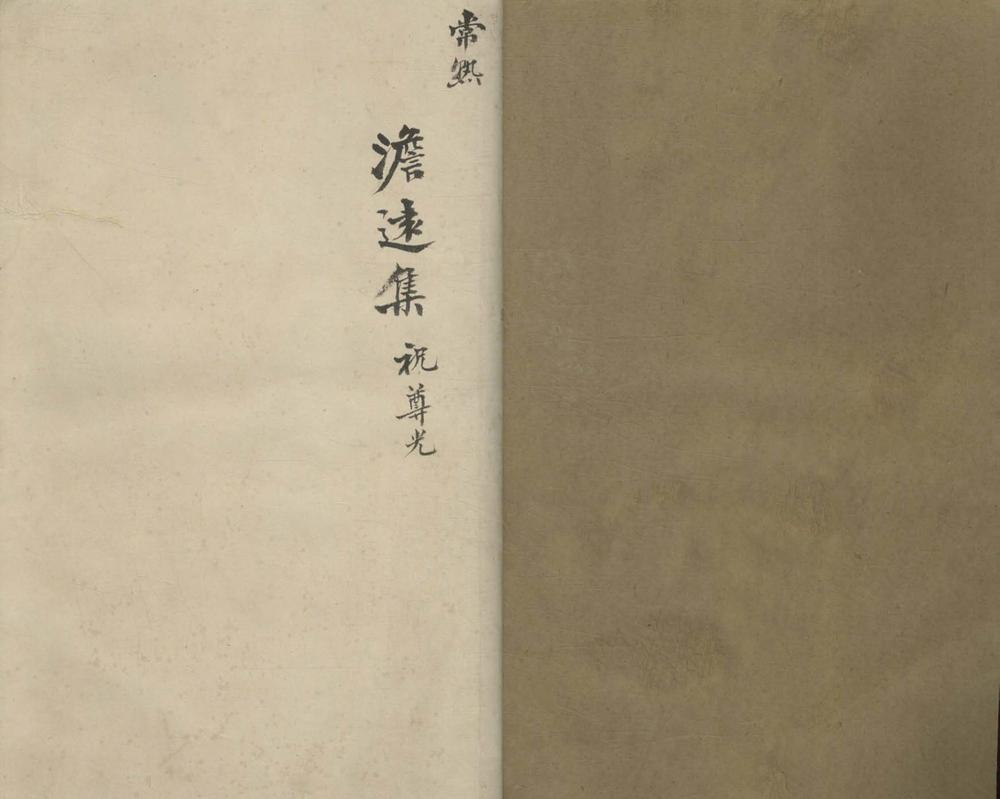 常熟
澹遠集
祝尊光